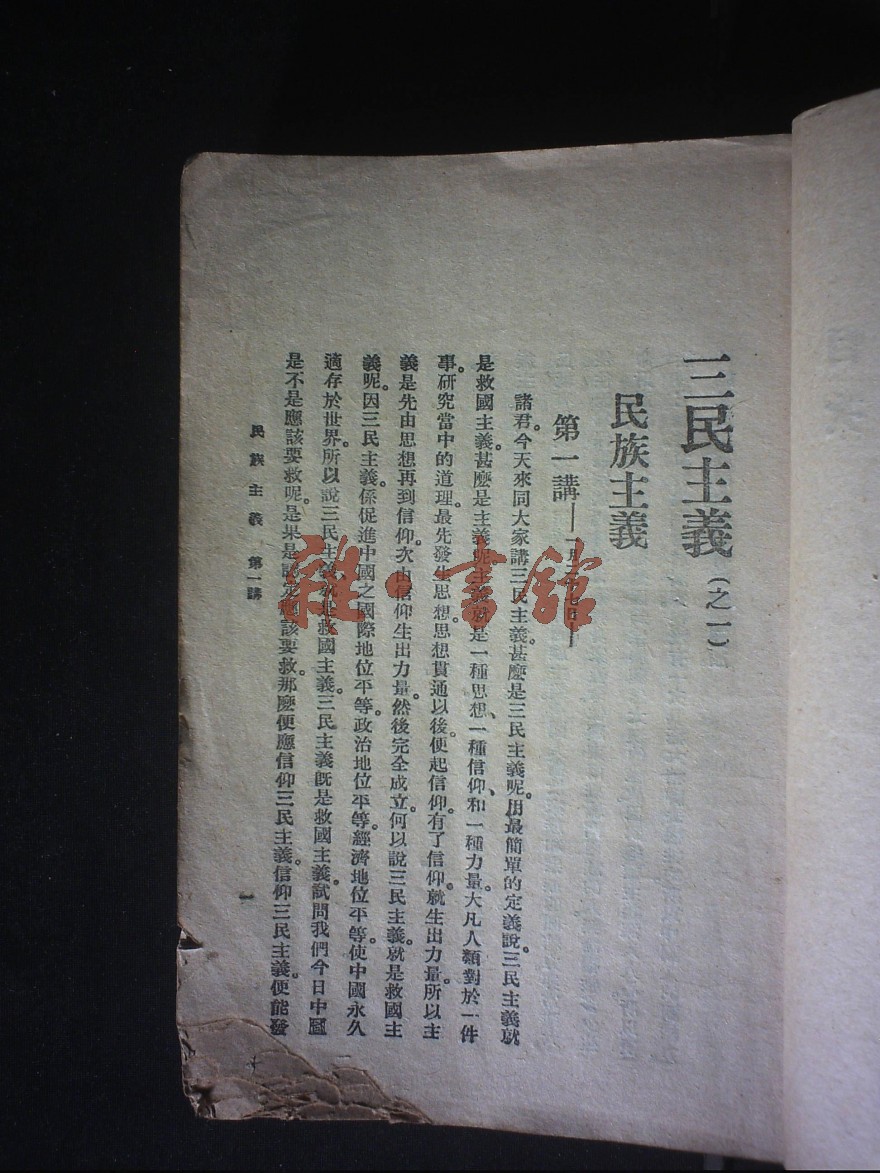 三民主義(之一)
民族主義
第一講——一月二十七日——
諸君。今天來同大家講三民主義。甚麼是三民主義呢。用最簡單的定義說。三民主義就
是救國主義。甚麼是主義呢。主義就是一種思想、一種信仰、和一種力量。大凡人類對於一件
事。研究當中的道理。最先發生思想。思想貫通以後。便起信仰。有了信仰。就生出力量。所以主
義是先由思想再到信仰。次由信仰生出力量。然後完全成立。何以說三民主義。就是救國主
義呢。因三民主義。係促進中國之國際地位平等。政治地位平等。經濟地位平等。使中國永久
適存於世界。所以說三民主義、就是救國主義。三民主義旣是救國主義。試問我們今日中國
是不是應該要救呢。是果是認定應該要救。那麼便應信仰三民主義。信仰三民主義。便能發
民族主義 第一講
一
雜·書館